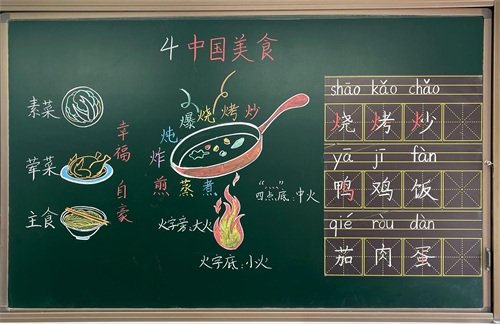 4 中国美食
素菜
荤菜
主食
幸福
自豪
炖 爆 烧 烤 炒
炸
煎 蒸 煮
"灬"
四点底:中火
火字旁:大火
火字底:小火
shāo kǎo chǎo
烧 烤 炒
yā jī fàn
鸭 鸡 饭
qié ròu dàn
茄 肉 蛋